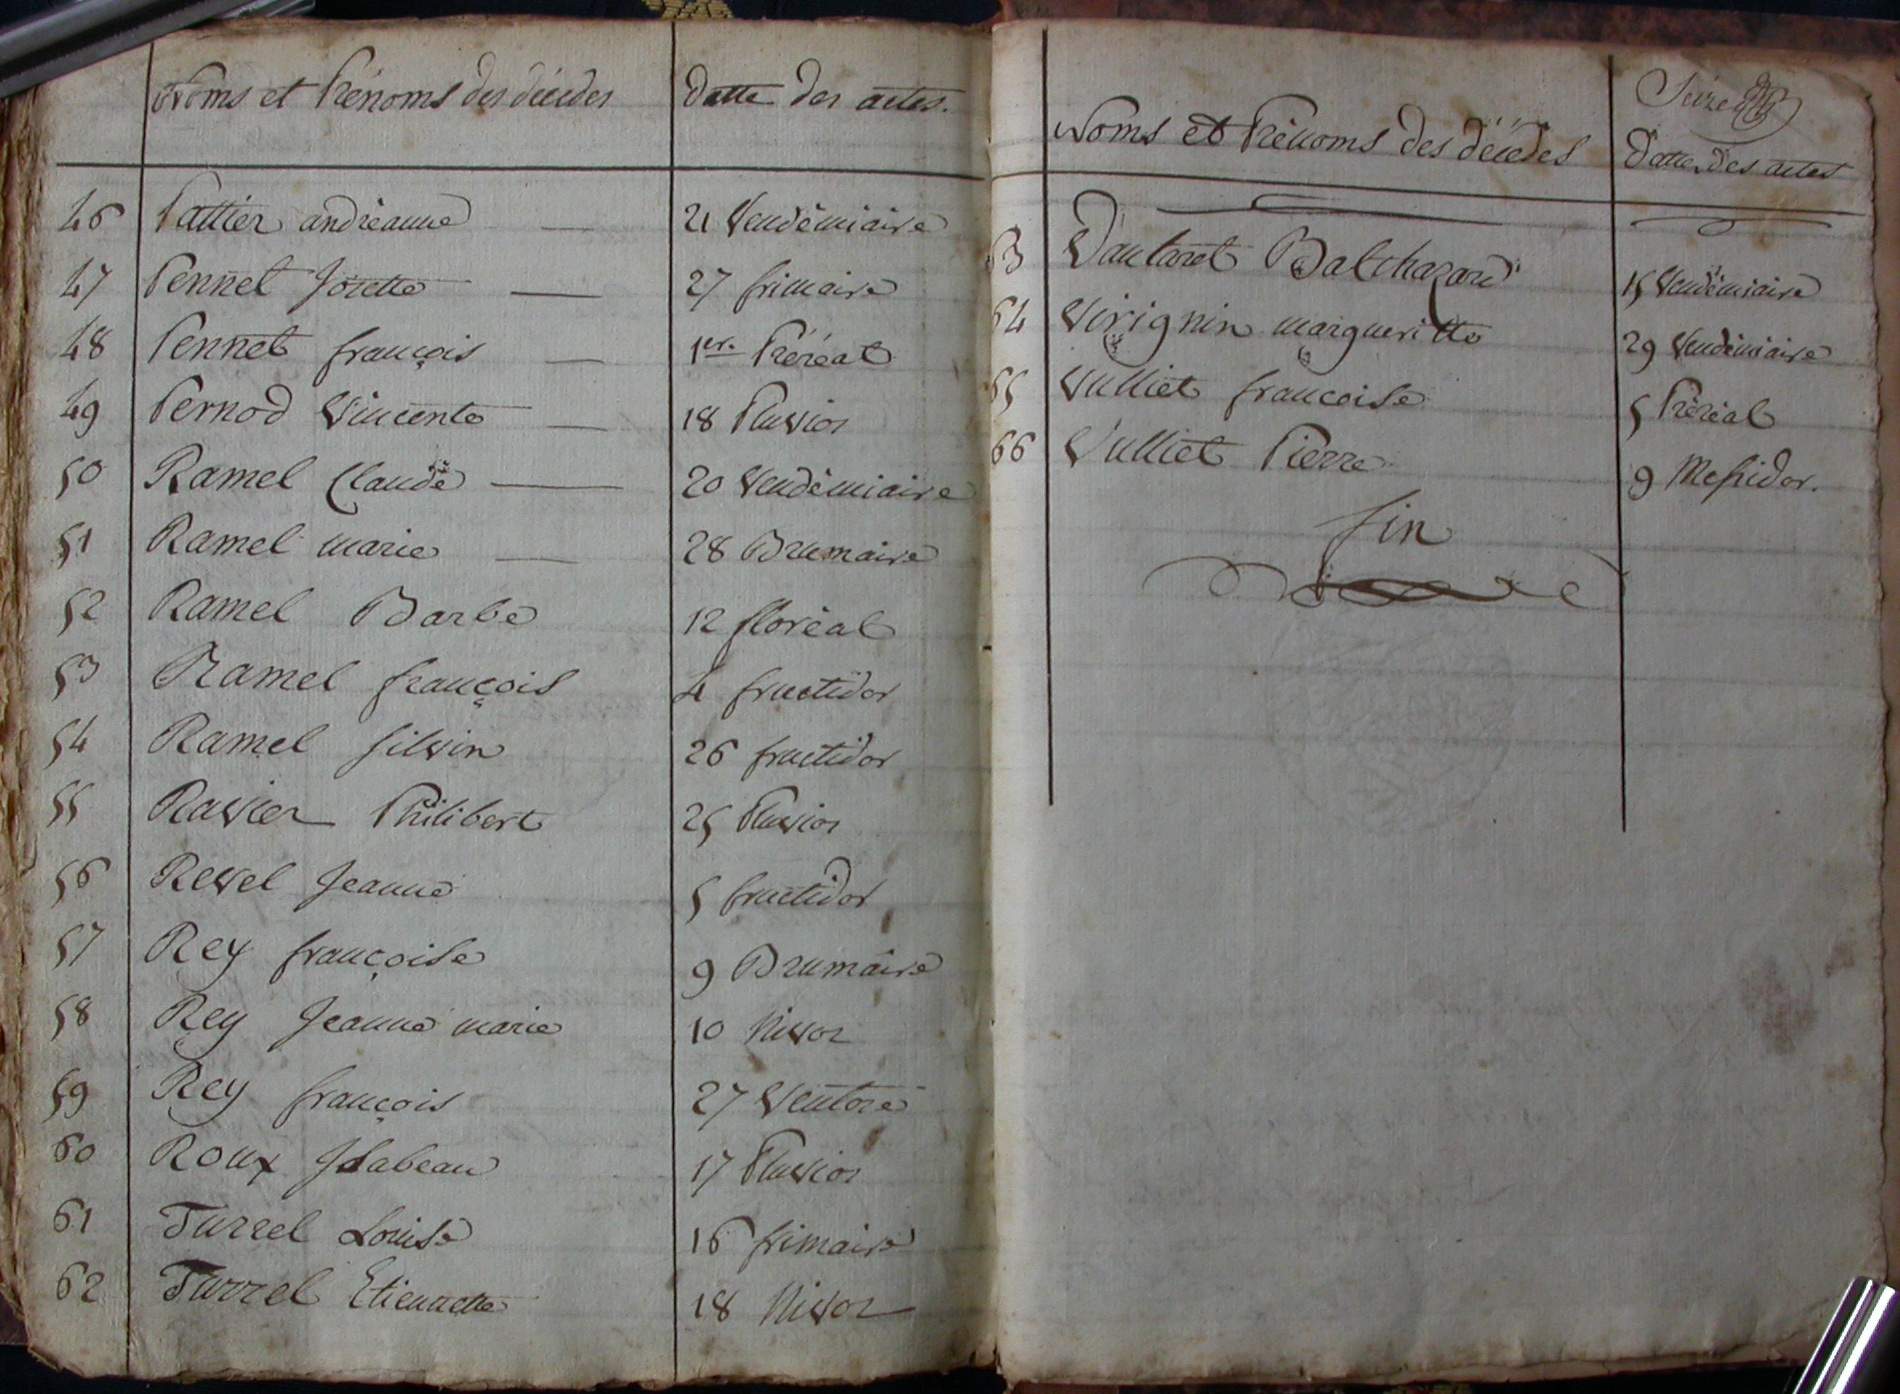 Noms et Prénoms des décédés Datte des actes.
46 Pattier andréanne 21 Vendémiaire
47 Pennet Josette 27 frimaire
48 Pennet françois 1er. Préréal
49 Pernod Vincente 18 Pluvios
50 Ramel Claude 20 Vendémiaire
51 Ramel marie 28 Brumaire
52 Ramel Barbe 12 floréal
53 Ramel françois 4 fructidor
54 Ramel Silvin 26 fructidor
55 Ravier Philibert 25 Pluvios
56 Revel Jeanne 5 fructidor
57 Rey françoise 9 Brumaire
58 Rey Jeanne marie 10 Nivoz
59 Rey françois 27 Ventose
60 Roux Isabeau 17 Pluvios
61 Turrel Louise 16 frimaire
62 Turrel Etiennette 18 Nivoz
Seize
Noms et Prénoms des décédés Datte des actes
63 Vautaret Balthazard 15 Vendémiaire
64 Virignin margueritte 29 Vendémiaire
65 Vulliet francoise 5 Préréal
66 Vulliet Pierre 9 Messidor.
fin